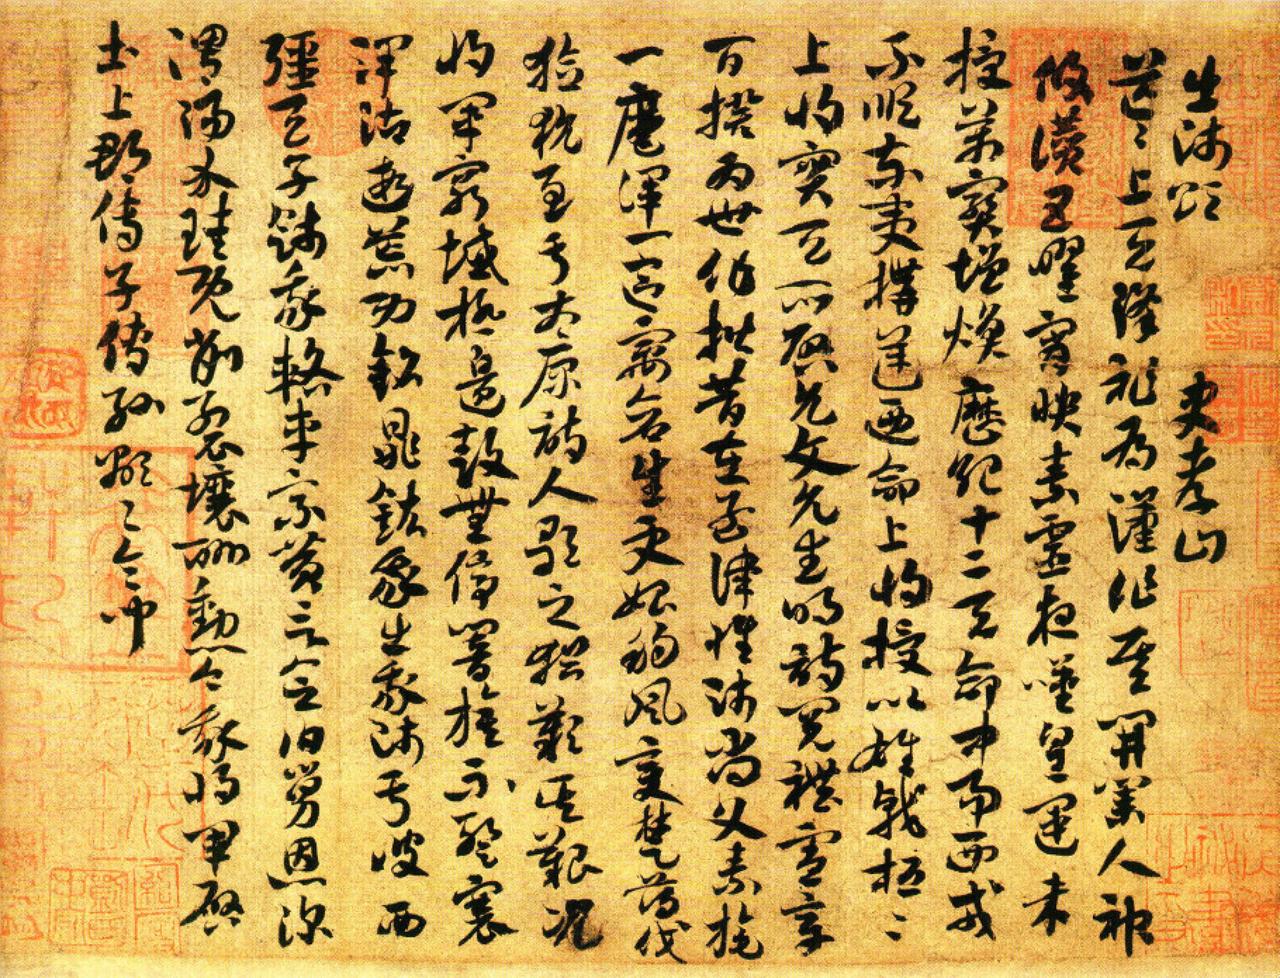 出師頌 史孝山
茫〻上天降祚為漢作基開業人神
攸讚五曜宵映素靈夜嘆皇運未
授萬寶增煥歷紀十二天命中易西戎
不順東夷構逆乃命上將授以雄戟桓〻
上將寔天所啟允文允武明詩閱禮憲章
百揆為世作楷昔在孟津惟師尚父素旄
一麾渾一區宇蒼生更始朔風變楚薄伐
獫狁至于太原詩人歌之猶歎其艱況
將軍窮域極邊鼓無停響旌不蹔褰
澤沾遐荒功銘鼎鉉我出我師于彼西
疆天子餞我輅車乘黃言念伯舅恩深
渭陽介珪既削列壤酬勳今我將軍啟
土上郡傳子傳孫顯〻令問